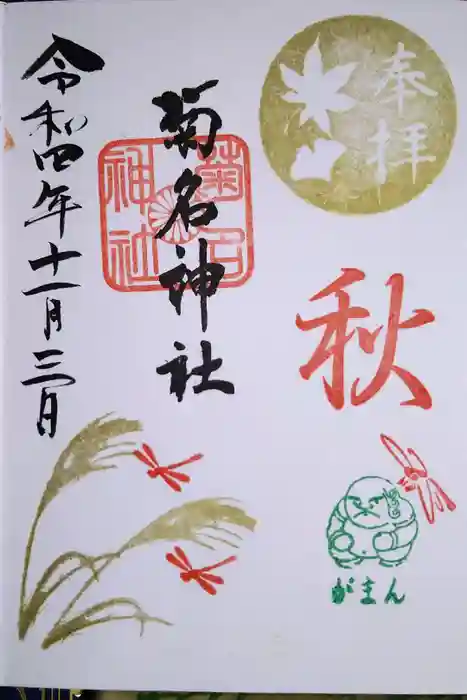 奉拝
秋
がまん
菊名神社
菊名神社
令和四年十一月三日